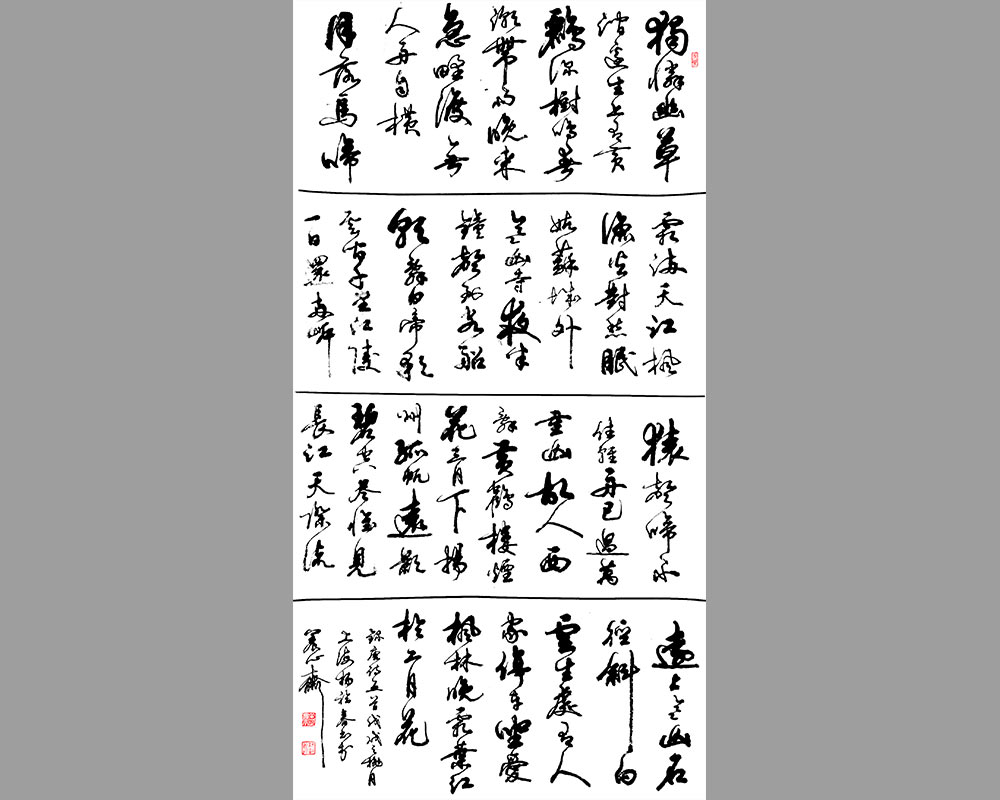 獨憐幽草
澗邊生上有黃
鸝深樹鳴春
潮帶雨晚來
急野渡無
人舟自橫
月落烏啼
霜滿天江楓
漁火對愁眠
姑蘇城外
寒山寺夜半
鐘聲到客船
朝辭白帝彩
雲間千里江陵
一日還兩岸
猿聲啼不
住輕舟已過萬
重山故人西
辭黃鶴樓煙
花三月下揚
州孤帆遠影
碧空盡惟見
長江天際流
遠上寒山石
徑斜白
雲生處有人
家停車坐愛
楓林晚霜葉紅
於二月花
錄唐詩五首戊戌之秋月
上海楊
齋